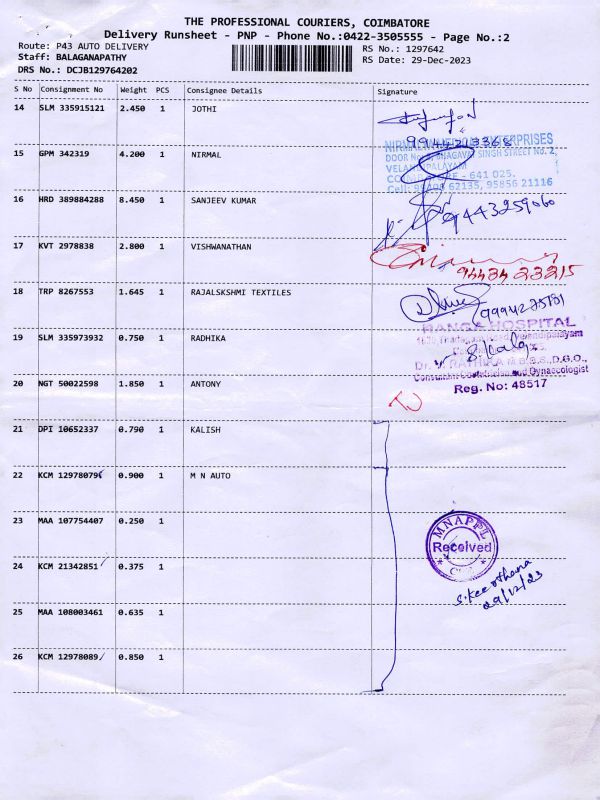 THE PROFESSIONAL COURIERS, COIMBATORE
Delivery Runsheet - PNP - Phone No.:0422-3505555 - Page No.:2
Route: P43 AUTO DELIVERY
RS No.: 1297642
Staff: BALAGANAPATHY
RS Date: 29-Dec-2023
DRS No.: DCJB129764202
S No Consignment No Weight PCS Consignee Details Signature
14 SLM 335915121 2.450 1 JOTHI
15 GPM 342319 4.200 1 NIRMAL
ENTERPRISES
BHAGAVAT SINGH STREET No. 2,
- 641 025.
62135, 95856 21116
16 HRD 389884288 8.450 1 SANJEEV KUMAR
9443259060
17 KVT 2978838 2.800 1 VISHWANATHAN
18 TRP 8267553 1.645 1 RAJALSKSHMI TEXTILES
19 SLM 335973932 0.750 1 RADHIKA
RANGA HOSPITAL
M.B.B.S.,D.G.O.,
Consultant Obstetrician and Gynaecologist
Reg. No: 48517
20 NGT 50022598 1.850 1 ANTONY
21 DPI 10652337 0.790 1 KALISH
22 KCM 12978079 0.900 1 M N AUTO
23 MAA 107754407 0.250 1
MNAPPL
Received
24 KCM 21342851 0.375 1
S.Keerthana
29/12/23
25 MAA 108003461 0.635 1
26 KCM 12978089 0.850 1